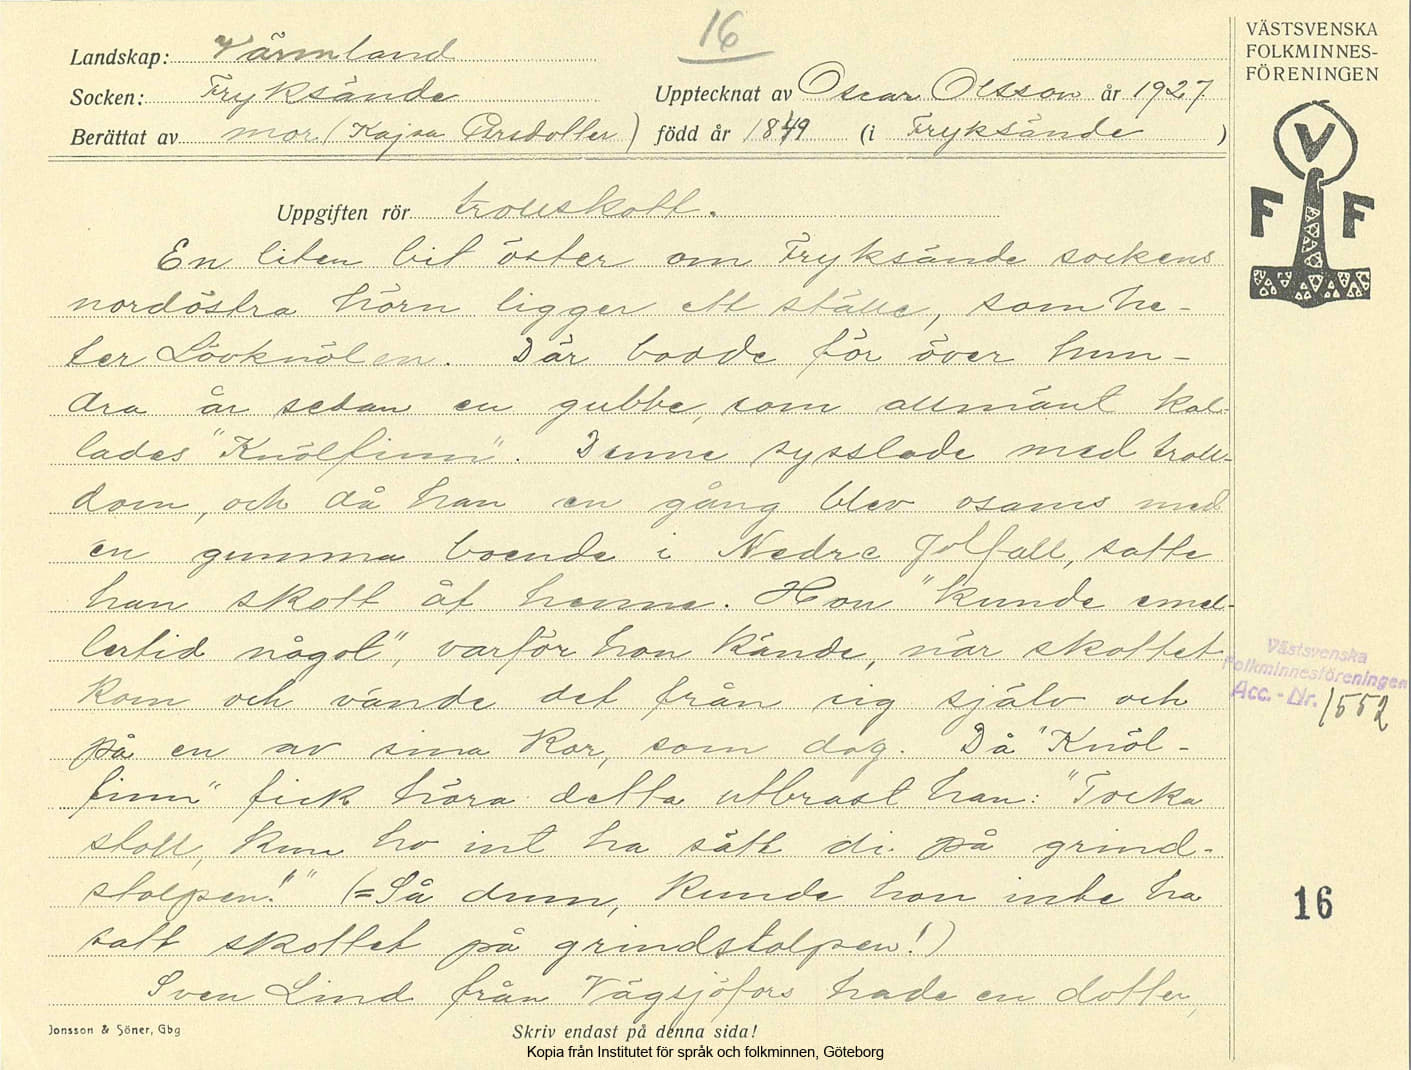 16
VÄSTSVENSKA
FOLKMINNES-
FÖRENINGEN
Landskap: Värmland
Socken: Fryksände
Upptecknat av Oscar Olsson år 1927
Berättat av mor (Kajsa Persdotter) född år 1849 (i Fryksände)
V
F F
Uppgiften rör trollskott.
En liten bit öster om Fryksände sockens
nordöstra hörn ligger ett ställe, som he-
ter Lövknölen. Där bodde för över hun-
dra år sedan en gubbe, som allmänt kal-
lades "Knölfinn". Denne sysslade med troll-
dom, och då han en gång blev osams med
en gumma boende i Nedre Jolfall, satte
han skott åt henne. Hon "kunde emel-
lertid något", varför hon kände, när skottet
kom och vände det från sig själv och
på en av sina kor, som dog. Då "Knöl-
finn" fick höra detta utbrast han: "Tocka
stoll, kun ho int ha sätt di på grind-
stolpen!" (= Så dum, kunde hon inte ha
satt skottet på grindstolpen!)
Sven Lind från Vägsjöfors hade en dotter,
Västsvenska
Folkminnesföreningen
Acc.-Nr. 1552
16
Jonsson & Söner, Gbg
Skriv endast på denna sida!
Kopia från Institutet för språk och folkminnen, Göteborg